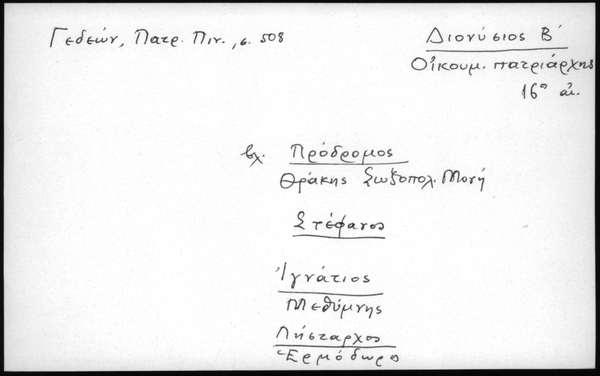 Γεδεών, Πατρ. Πιν., σ. 508
Διονύσιος Β΄
Οἰκουμ. πατριάρχης
16ος αι.
βλ. Πρόδρομος
Θράκης Σωζοπολ. Μονή
Στέφανος
Ἰγνάτιος
Μεθύμνης
Λήσταρχος
Ἑρμόδωρος